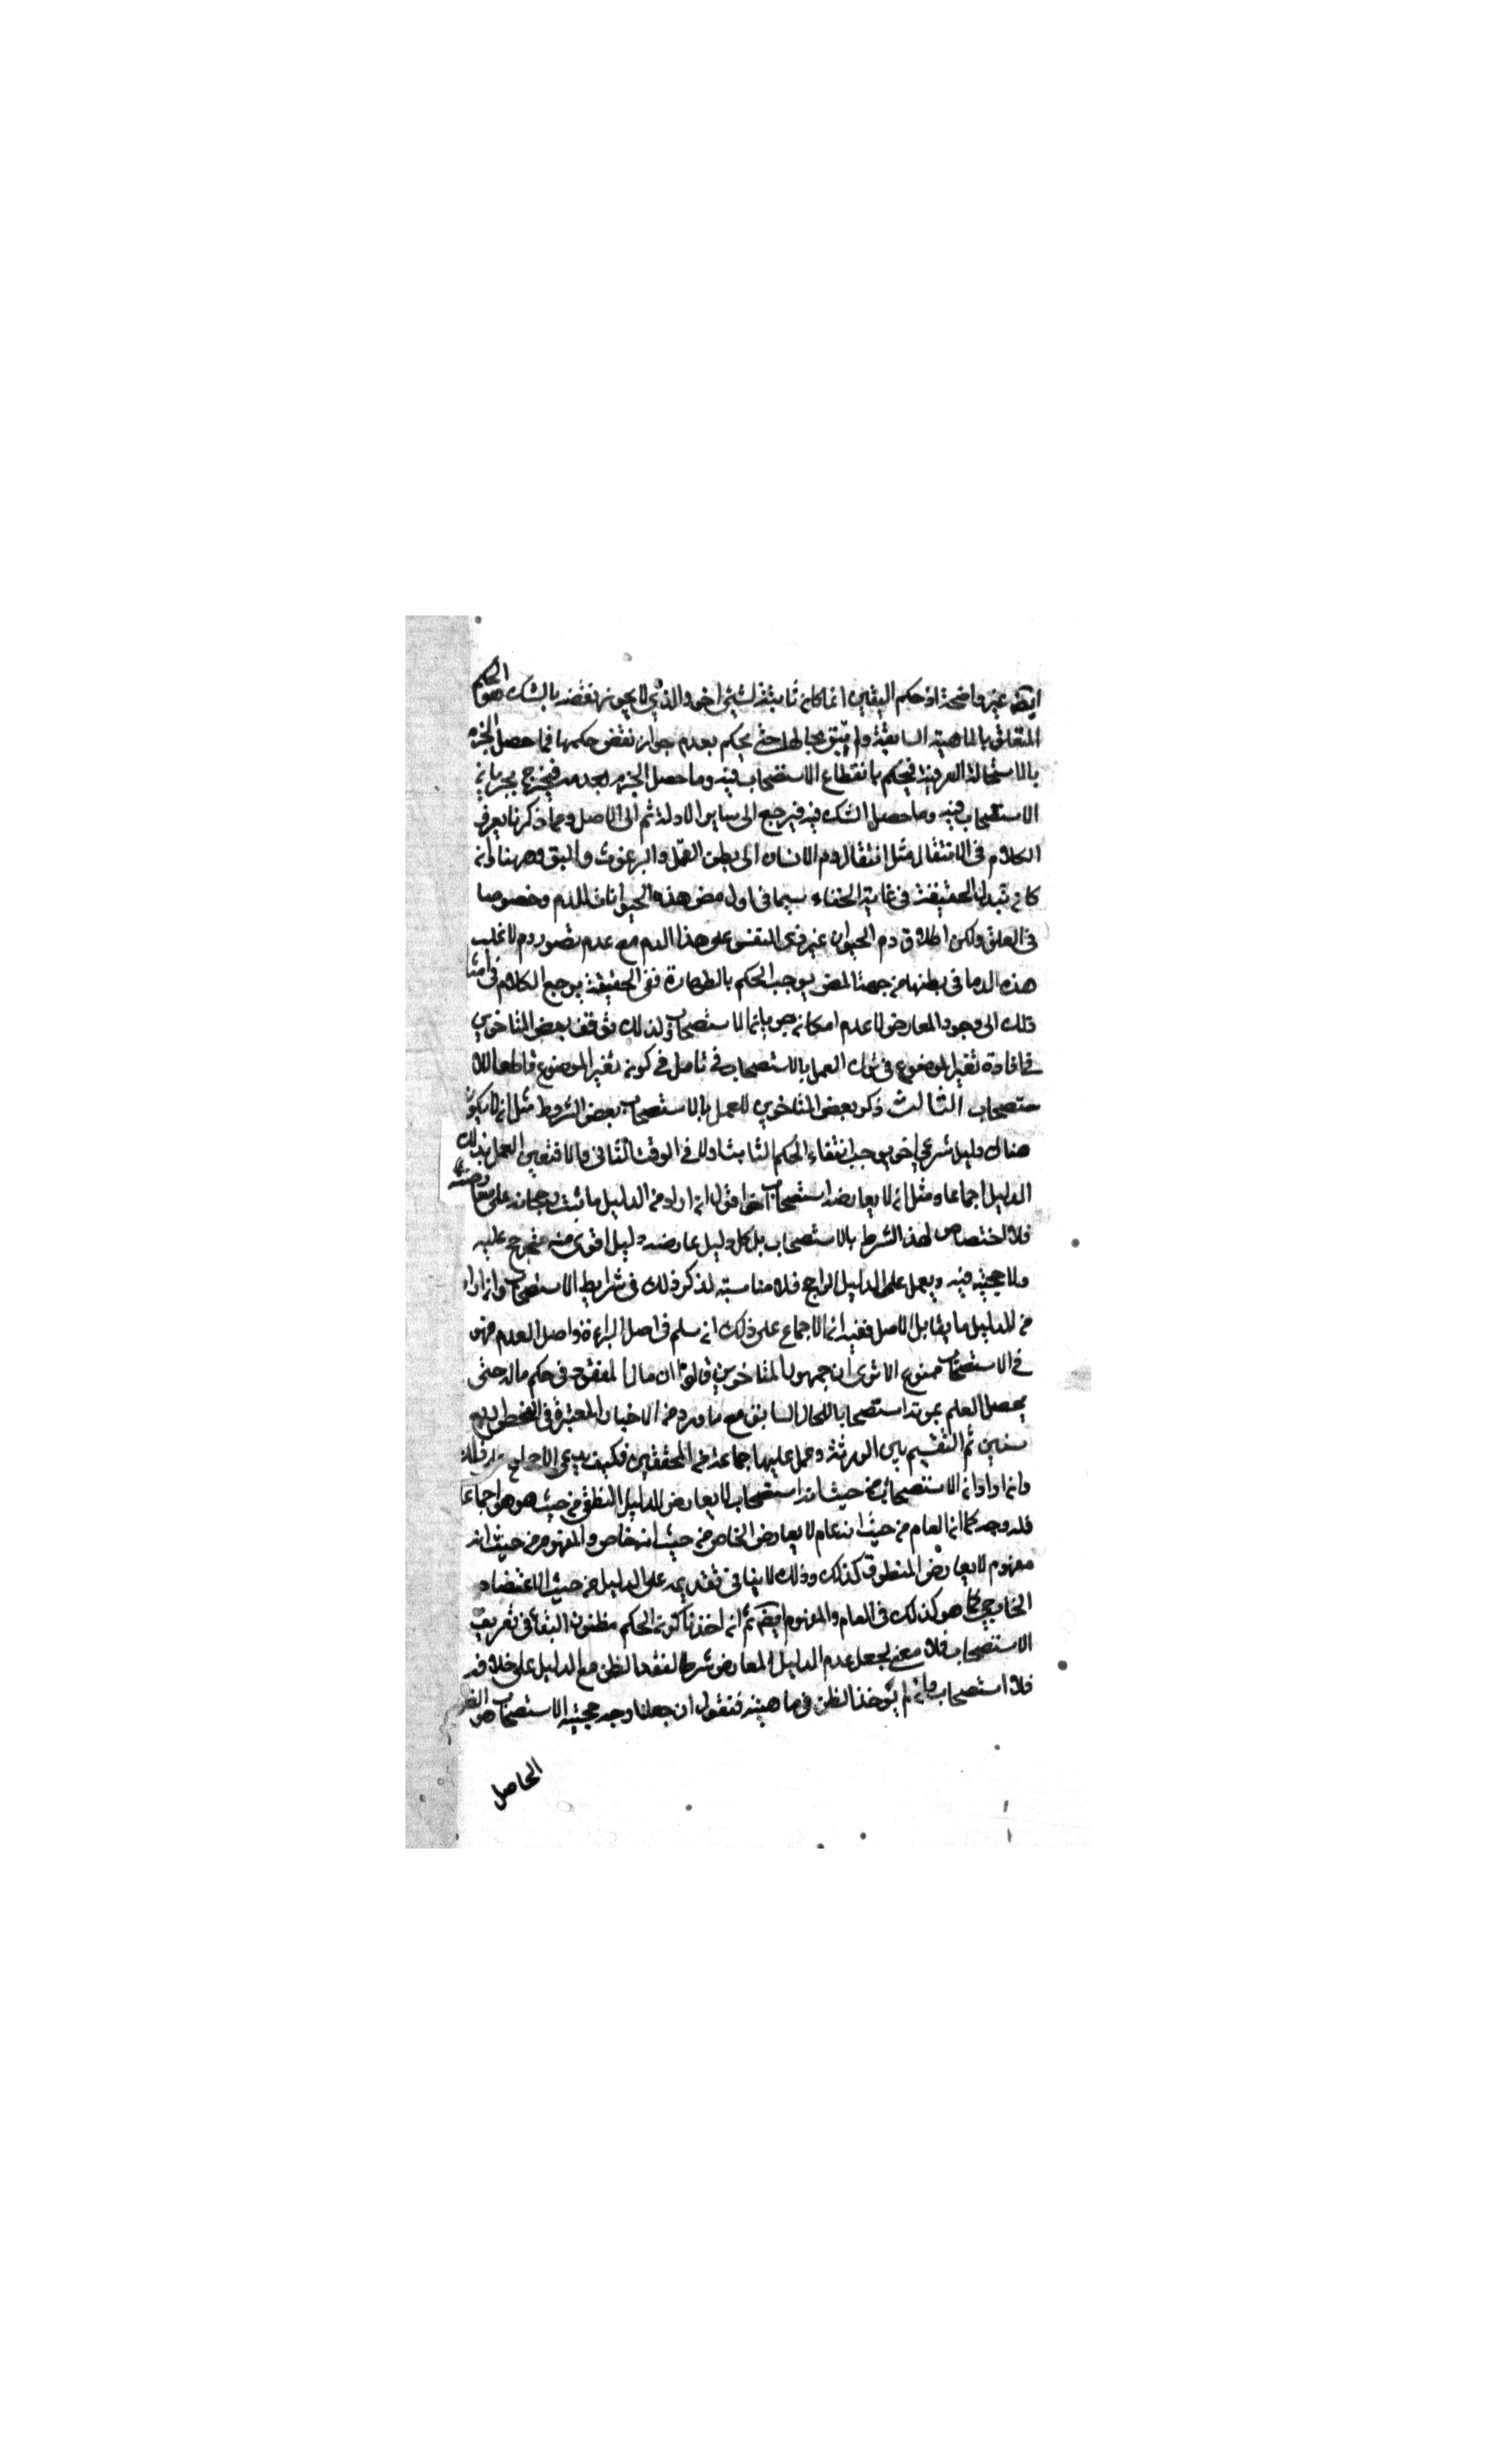 ايضا غير واضحة اذ حكم اليقين انما كان ثابتا لشيئ اخر والذي لا يجوز نقضه بالشك هو الحكم
المتعلق بالماهية السابقة ولم يبق مجالها حتى يحكم بعدم جواز نقض حكمها فما حصل الجزم
بالاستحالة العرفية فيحكم بانقطاع الاستصحاب فيه وما حصل الجزم بعدمه فيخرج بجريان
الاستصحاب فيه وما حصل الشك فيه فيرجع الى ساير الادلة ثم الى الاصل ومما ذكرنا يعرف
الكلام في الانتقال مثل انتقال دم الانسان الى بطن القمل والبرغوث والبق وههنا وان
كان تبدل الحقيقة في غاية الخفاء سيما في اول مص هذه الحيوانات للدم وخصوصا
في العلق ولكن اطلاق دم الحيوان غير ذي النفس على هذا الدم مع عدم تصور دم لاغلب
هذه الدما في بطنها من جهة المص يوجب الحكم بالطهارة ففي الحقيقة يرجع الكلام في امثا
ذلك الى وجود المعارض لا عدم امكان جريان الاستصحاب ولذلك توقف بعض المتاخرين
في افادة تغير الموضوع في ترك العمل بالاستصحاب في تامل في كون تغير الموضوع قاطعا للا
ستصحاب الثالث ذكر بعض المتاخرين للعمل بالاستصحاب بعض الشروط مثل ان لا يكون
هناك دليل شرعي اخر يوجب انتفاء الحكم الثابت اولا في الوقت الثاني والا فتعين العمل بذلك
الدليل اجماعا ومثل ان لا يعارضه استصحاب اخر اقول ان اراد من الدليل ما ثبت رجحانه على معارضته
فلا اختصاص لهذا الشرط بالاستصحاب بل كل دليل عارضه دليل اقوى منه مترجح عليه
فلا حجية فيه ويعمل على الدليل الراجح فلا مناسبة لذكر ذلك في شرايط الاستصحاب وان اراد
من الدليل ما يقابل الاصل ففيه ان الاجماع على ذلك ان سلم في اصل البراءة واصل العدم فهو
في الاستصحاب ممنوع الا ترى ان جمهور المتاخرين قالوا ان مال المفقود في حكم ماله حتى
يحصل العلم بموته استصحابا للحال السابق مع ما ورد من الاخبار المعتبرة في الفحص اربع
سنين ثم التقسيم بين الورثة وعمل عليها جماعة من المحققين فكيف يدعى الاجماع
وان اراد ان الاستصحاب من حيث انه استصحاب لا يعارض الدليل النطقي من حيث هو هو اجماعا
فله وجه كما ان العام من حيث انه عام لا يعارض الخاص من حيث انه خاص والمفهوم من حيث انه
مفهوم لا يعارض المنطوق كذلك وذلك لا ينافي تقديمه على الدليل من حيث الاعتضاد
الخارجي كما هو كذلك في العام والمفهوم ايضا ثم ان اخذنا كون الحكم مظنون البقاء في تعريف
الاستصحاب فلا معنى لجعل عدم الدليل المعارض شرطا لفقد الظن مع الدليل على خلافه
فلا استصحاب وان لم يؤخذ الظن في ماهيته فنقول ان جعلنا وجه حجية الاستصحاب هو الظن
الحاصل